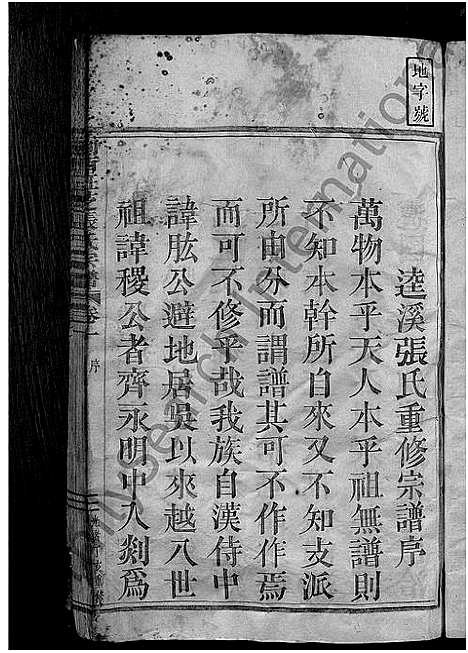 地字號
逵溪張氏重修宗譜序
萬物本乎天人本乎祖無譜則
不知本幹所自來又不知支派
所由分而謂譜其可不作作焉
而可不修乎哉我族自漢侍中
諱肱公避地居吳以來越八世
祖諱稷公者齊永明中入剡為
張氏宗譜 卷一
序